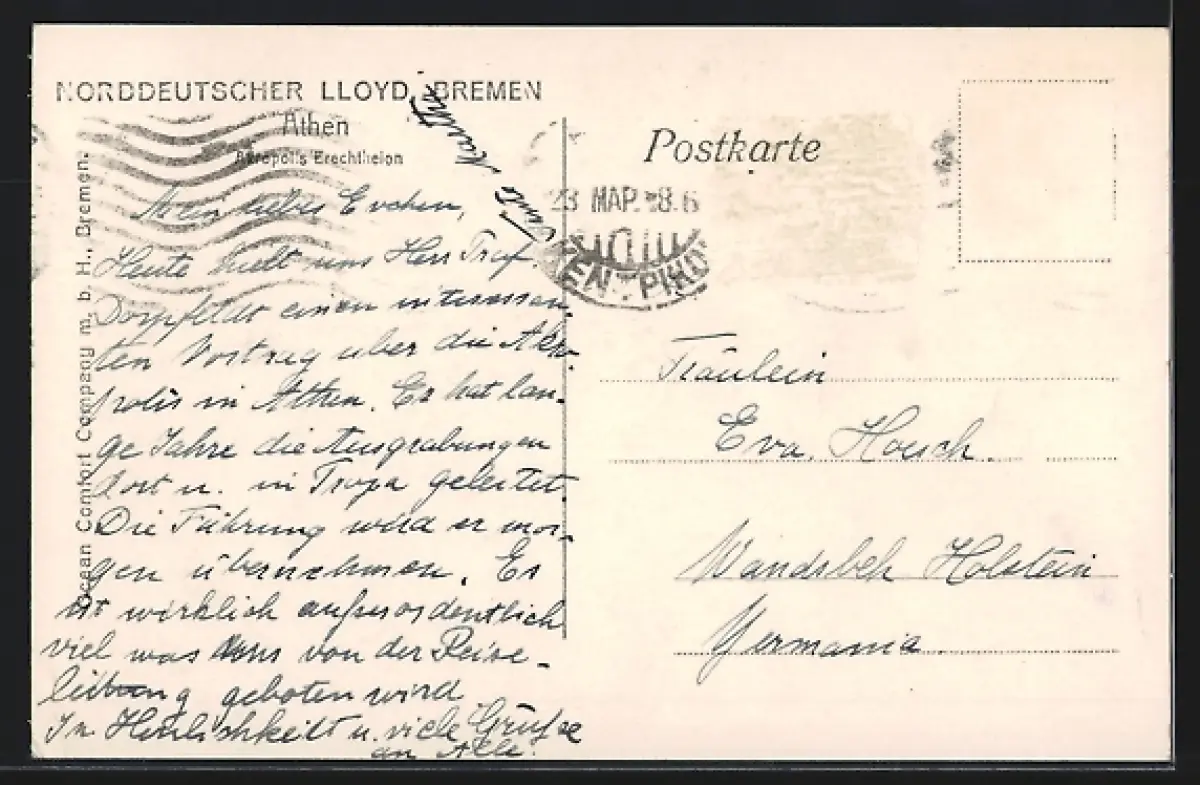 NORDDEUTSCHER LLOYD, BREMEN
Athen
Akropolis Erechtheion
Ocean Comfort Company m. b. H., Bremen.
Mein liebes Evchen,
Heute hielt uns Herr Prof.
Dörpfeldt einen interessan-
ten Vortrag über die Akro-
polis in Athen. Er hat lan-
ge Jahre die Ausgrabungen
dort u. in Troja geleitet.
Die Führung wird er mor-
gen übernehmen. Es
ist wirklich außerordentlich
viel was uns von der Reise-
leitung geboten wird
In Herzlichkeit u. viele Grüße
an Alle.
Tante Martha
Postkarte
23 ΜΑΡ. 8.6
ΚΕΝΤΡΙΚΟΝ
Fräulein
Eva Hoesch.
Wandsbek Holstein
Germania.